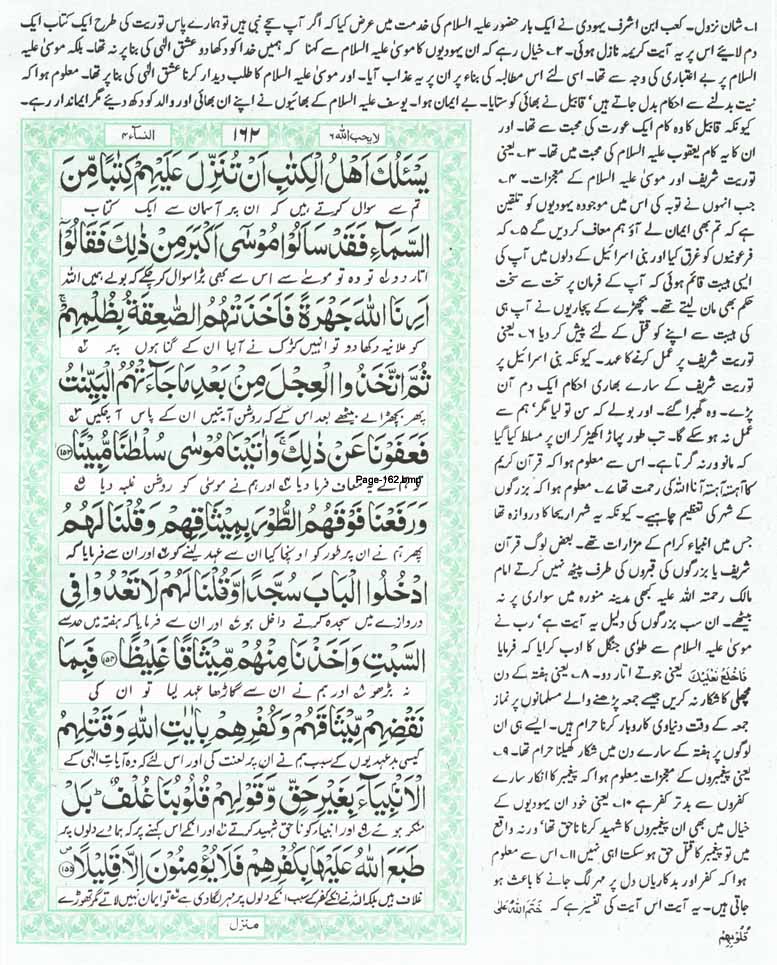 ۱۔ شان نزول۔ کعب ابن اشرف یہودی نے ایک بار حضور علیہ السلام کی خدمت میں عرض کیا کہ اگر آپ سچے نبی ہیں تو ہمارے پاس توریت کی طرح ایک کتاب ایک
دم لایئے اس پر یہ آیت کریمہ نازل ہوئی۔ ۲۔ خیال رہے کہ ان یہودیوں کا موسیٰ علیہ السلام سے کہنا کہ ہمیں خدا کو دکھا دو عشق الٰہی کی بنا پر نہ تھا۔ بلکہ موسیٰ علیہ
السلام پر بے اعتباری کی وجہ سے تھا۔ اسی لئے اس مطالبہ کی بناء پر ان پر یہ عذاب آیا۔ اور موسیٰ علیہ السلام کا طلب دیدار کرنا عشق الٰہی کی بنا پر تھا۔ معلوم ہوا کہ
نیت بدلنے سے احکام بدل جاتے ہیں' قابیل نے بھائی کو ستایا۔ بے ایمان ہوا۔ یوسف علیہ السلام کے بھائیوں نے اپنے ان بھائی اور والد کو دکھ دیئے مگر ایماندار رہے۔
کیونکہ قابیل کا وہ کام ایک عورت کی محبت سے تھا۔ اور
ان کا یہ کام یعقوب علیہ السلام کی محبت میں تھا۔ ۳۔ یعنی
توریت شریف اور موسیٰ علیہ السلام کے معجزات۔ ۴۔
جب انہوں نے توبہ کی اس میں موجودہ یہودیوں کو تلقین
ہے کہ تم بھی ایمان لے آؤ ہم معاف کر دیں گے ۵۔ کہ
فرعونیوں کو غرق کیا اور بنی اسرائیل کے دلوں میں آپ کی
ایسی ہیبت قائم ہوئی کہ آپ کے فرمان پر سخت سے سخت
حکم بھی مان لیتے تھے۔ بچھڑے کے پجاریوں نے آپ ہی
کی ہیبت سے اپنے کو قتل کے لئے پیش کر دیا ۶۔ یعنی
توریت شریف پر عمل کرنے کا عہد۔ کیونکہ بنی اسرائیل پر
توریت شریف کے سارے بھاری احکام ایک دم آن
پڑے۔ وہ گھبرا گئے۔ اور بولے کہ سن تو لیا مگر' ہم سے
عمل نہ ہو سکے گا۔ تب طور پہاڑ اکھیڑ کر ان پر مسلط کیا گیا
کہ مانو ورنہ گرتا ہے۔ اس سے معلوم ہوا کہ قرآن کریم
کا آہستہ آہستہ آنا اللہ کی رحمت تھا ۷۔ معلوم ہوا کہ بزرگوں
کے شہر کی تعظیم چاہیے۔ کیونکہ یہ شہر اریحا کا دروازہ تھا
جس میں انبیاء کرام کے مزارات تھے۔ بعض لوگ قرآن
شریف یا بزرگوں کی قبروں کی طرف پیٹھ نہیں کرتے امام
مالک رحمتہ اللہ علیہ کبھی مدینہ منورہ میں سواری پر نہ
بیٹھے۔ ان سب بزرگوں کی دلیل یہ آیت ہے' رب نے
موسیٰ علیہ السلام سے طوٰی جنگل کا ادب کرایا کہ فرمایا
فَاخْلَعْ نَعْلَیْكَ یعنی جوتے اتار دو۔ ۸۔ یعنی ہفتہ کے دن
مچھلی کا شکار نہ کریں جیسے جمعہ پڑھنے والے مسلمانوں پر نماز
جمعہ کے وقت دنیاوی کاروبار کرنا حرام ہیں۔ ایسے ہی ان
لوگوں پر ہفتہ کے سارے دن میں شکار کھیلنا حرام تھا۔ ۹۔
یعنی پیغمبروں کے معجزات معلوم ہوا کہ پیغمبر کا انکار سارے
کفروں سے بدتر کفر ہے ۱۰۔ یعنی خود ان یہودیوں کے
خیال میں بھی ان پیغمبروں کا شہید کرنا ناحق تھا' ورنہ واقع
میں تو پیغمبر کا قتل حق ہو سکتا ہی نہیں ۱۱۔ اس سے معلوم
ہوا کہ کفر اور بدکاریاں دل پر مہر لگ جانے کا باعث ہو
جاتی ہیں۔ یہ آیت اس آیت کی تفسیر ہے کہ خَتَمَ اللہُ عَلٰی
قُلُوْبِهِمْ
لایحب اللہ ۶ ۱۶۲ النساء ۴
یَسْـَٔلُكَ اَهْلُ الْكِتٰبِ اَنْ تُنَزِّلَ عَلَیْهِمْ كِتٰبًا مِّنَ
تم سے سوال کرتے ہیں کہ ان پر آسمان سے ایک کتاب
السَّمَآءِ فَقَدْ سَاَلُوْا مُوْسٰۤى اَكْبَرَ مِنْ ذٰلِكَ فَقَالُوْۤا
اتار دو تو وہ تو موسیٰ سے اس سے بھی بڑا سوال کر چکے کہ بولے ہمیں اللہ
اَرِنَا اللّٰهَ جَهْرَةً فَاَخَذَتْهُمُ الصّٰعِقَةُ بِظُلْمِهِمْ ۚ
کو علانیہ دکھا دو تو انہیں کڑک نے آلیا ان کے گناہوں پر
ثُمَّ اتَّخَذُوا الْعِجْلَ مِنْۢ بَعْدِ مَا جَآءَتْهُمُ الْبَیِّنٰتُ
پھر بچھڑا لے بیٹھے بعد اس کے کہ روشن آیتیں ان کے پاس آچکیں
فَعَفَوْنَا عَنْ ذٰلِكَ ۚ وَ اٰتَیْنَا مُوْسٰى سُلْطٰنًا مُّبِیْنًا ۝۱۵۳
Page-162.bmp
معاف فرما دیا اور ہم نے موسیٰ کو روشن غلبہ دیا
وَ رَفَعْنَا فَوْقَهُمُ الطُّوْرَ بِمِیْثَاقِهِمْ وَ قُلْنَا لَهُمُ
پھر ہم نے ان پر طور کو اونچا کیا ان سے عہد لینے کو اور ان سے فرمایا کہ
ادْخُلُوا الْبَابَ سُجَّدًا وَّ قُلْنَا لَهُمْ لَا تَعْدُوْا فِی
دروازے میں سجدہ کرتے داخل ہو اور ان سے فرمایا کہ ہفتہ میں حد سے
السَّبْتِ وَ اَخَذْنَا مِنْهُمْ مِّیْثَاقًا غَلِیْظًا ۝۱۵۴ فَبِمَا
نہ بڑھو اور ہم نے ان سے گاڑھا عہد لیا تو ان کی
نَقْضِهِمْ مِّیْثَاقَهُمْ وَ كُفْرِهِمْ بِاٰیٰتِ اللّٰهِ وَ قَتْلِهِمُ
کیسی بدعہدیوں کے سبب ہم نے ان پر لعنت کی اور اس لئے کہ وہ آیات الٰہی کے
الْاَنْۢبِیَآءَ بِغَیْرِ حَقٍّ وَّ قَوْلِهِمْ قُلُوْبُنَا غُلْفٌ ؕ بَلْ
منکر ہوئے اور انبیاء کو ناحق شہید کرتے اور انکے اس کہنے پر کہ ہمارے دلوں پر
طَبَعَ اللّٰهُ عَلَیْهَا بِكُفْرِهِمْ فَلَا یُؤْمِنُوْنَ اِلَّا قَلِیْلًا ۝۱۵۵
غلاف ہیں بلکہ اللہ نے انکے کفر کے سبب انکے دلوں پر مہر لگا دی ہے تو ایمان نہیں لاتے مگر تھوڑے
منزل